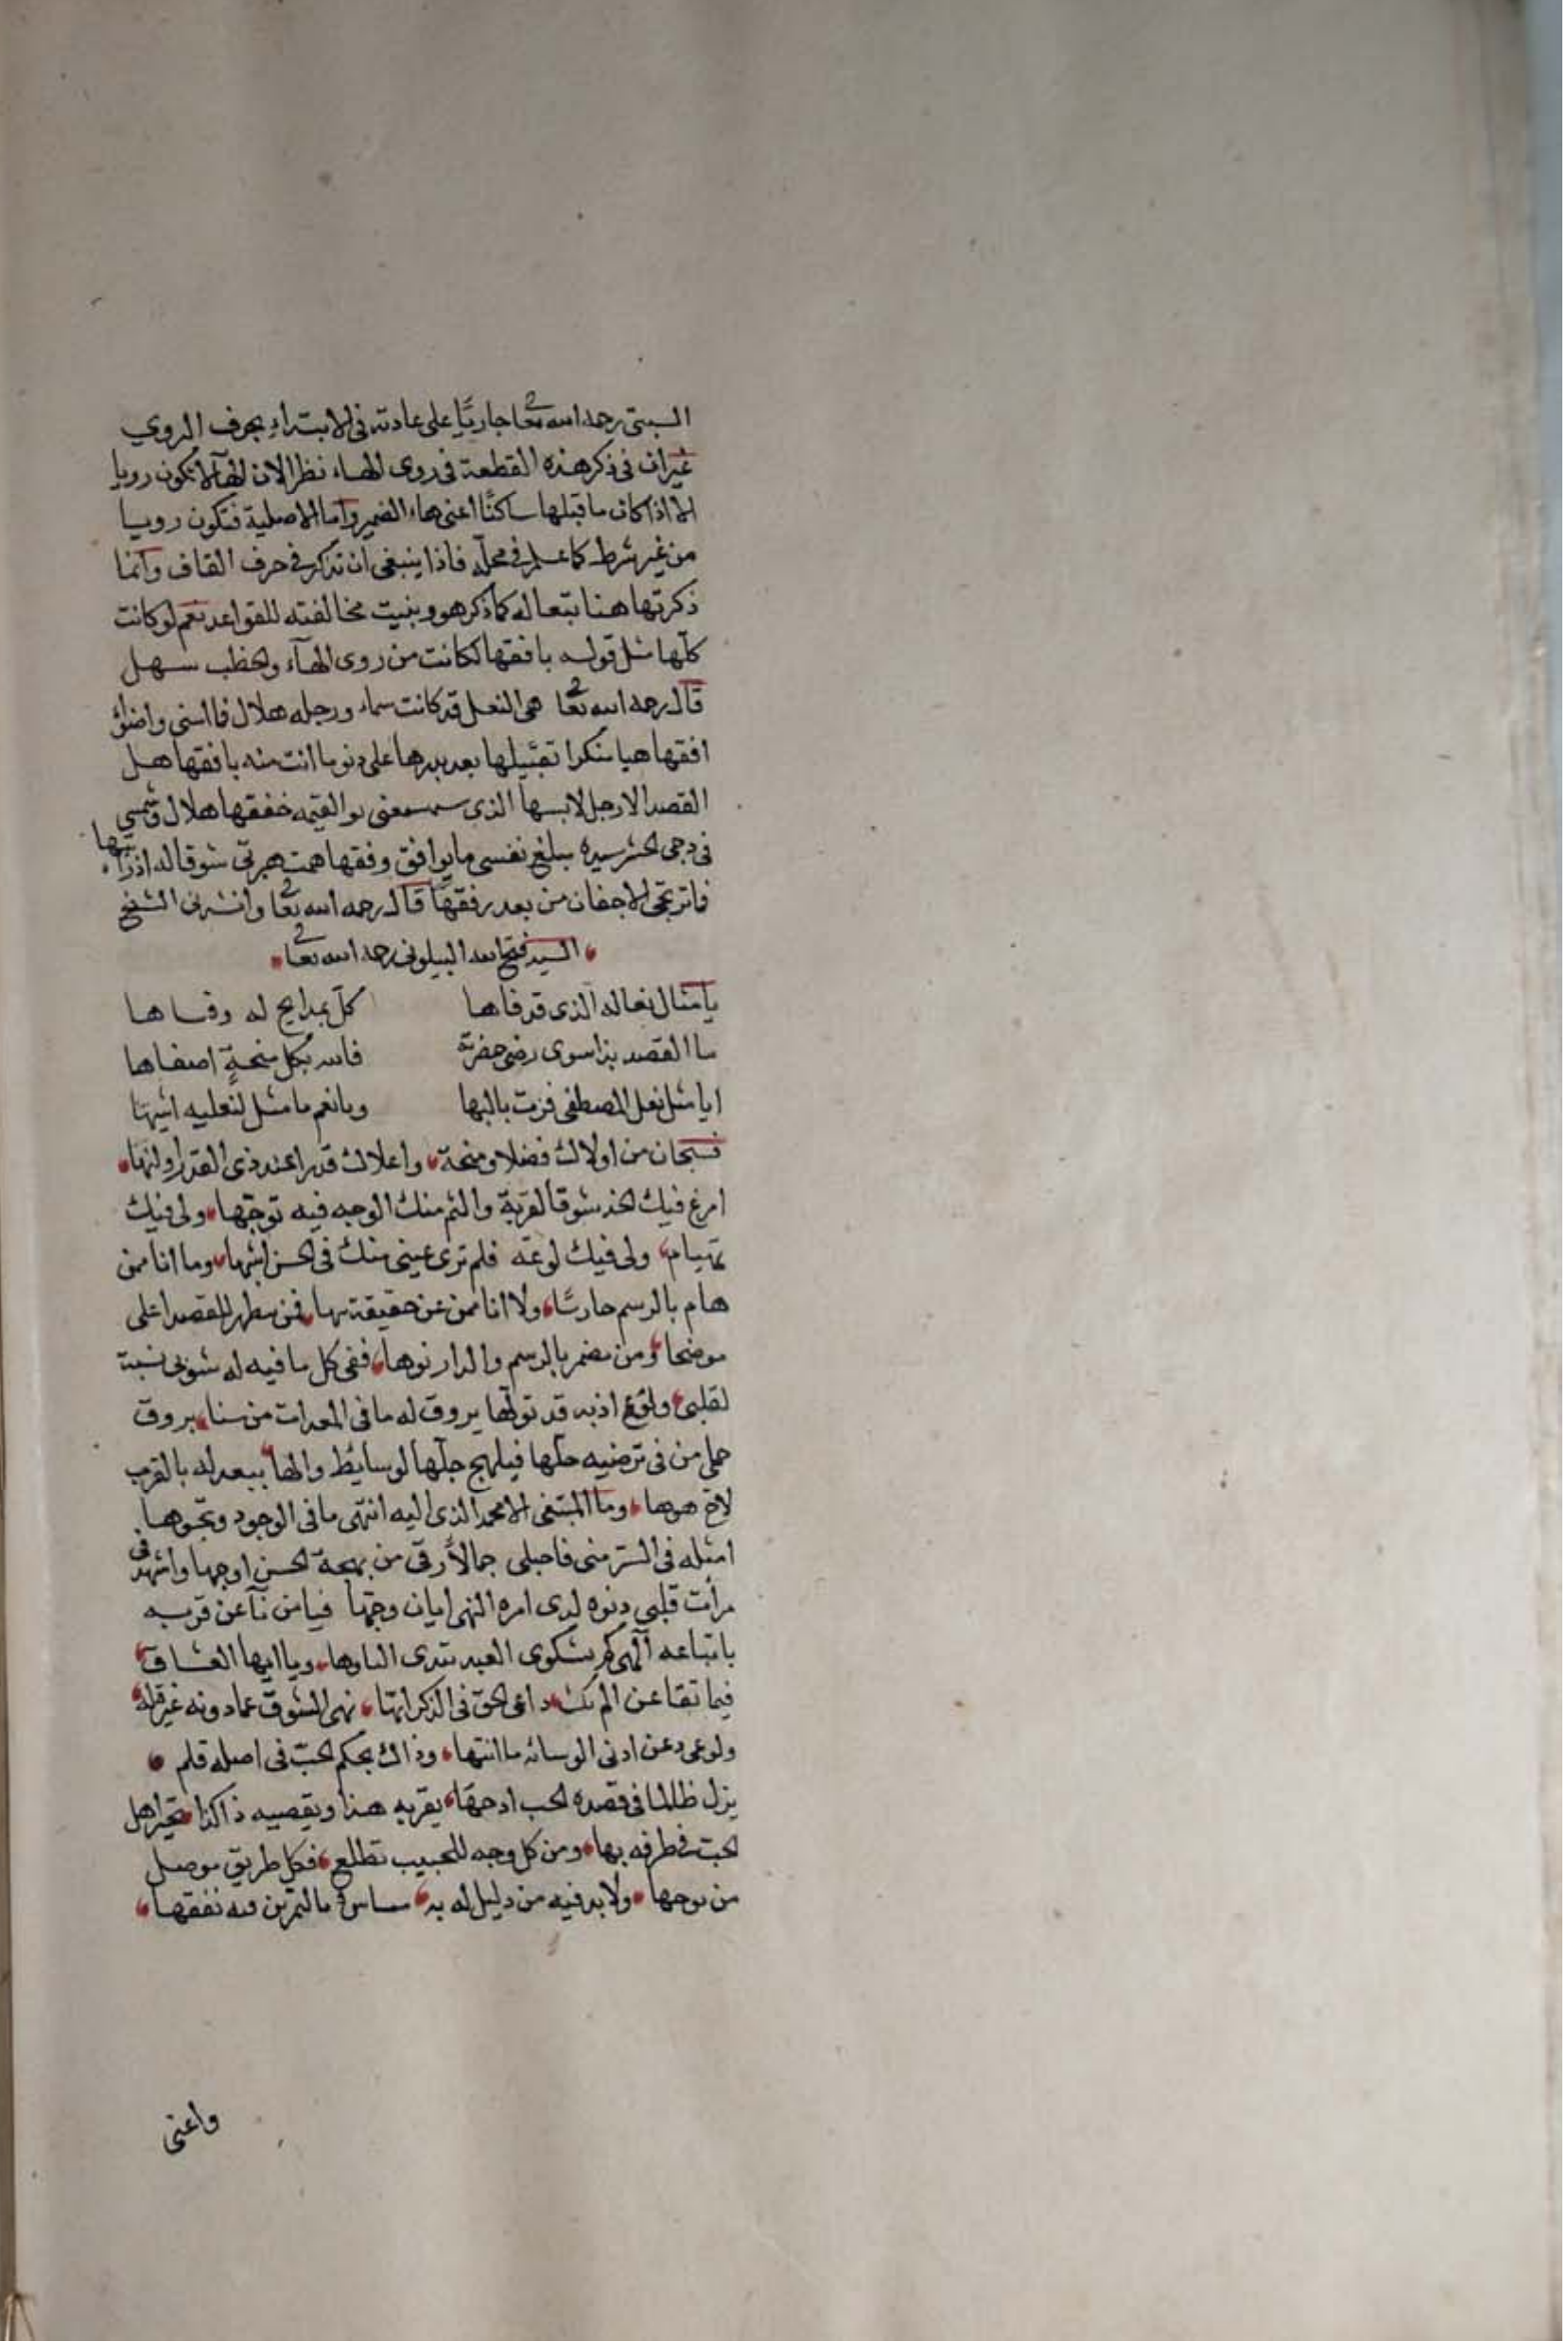 السبتى رحمه الله تعا جاريًا على عادته فى الابتداء بحرف الروي
غيران فى ذكر هذه القطعة فى روى الهاء نظرا لان الهآء لا يكون رويا
الا اذا كان ما قبلها ساكنًا اعنى هاء الضمير واما الاصلية فتكون رويا
من غير شرط كما علم فى محلّه فاذا ينبغى ان تذكر فى حرف القاف وانما
ذكرتها هنا تبعا له كما ذكر هو وبنيت مخالفته للقواعد نعم لو كانت
كلّها مثل قوله بافقها لكانت من روى الهآء والخطب سهل
قال رحمه الله تعا هى النعل قد كانت سماء ورجله هلال فما اسنى واضاؤ
افقها هيا منكرا تقبيلها بعد بدرها على دنو ما انت منه بافقها هل
القصد الا رجل لابسها الذى خففقها هلال وشمسى
فى دجى الحشر سيده يبلغ نفسى ما يوافق وفقها همت عبرتى شوقا له اذ رايتها
فاترتجى الاجفان من بعد رفقها قال رحمه الله تعا وانشدنى الشيخ
السيد فتح الله البيلونى رحمه الله تعا
يا مثال نعاله الذى قد فاها كل بمدايح له وفاها
ما القصد بذا سوى رضى حضرته فالله بكل منحةٍ اصفاها
ايا مثل نعل المصطفى فزت بالبها ويا نعم ما مثل لنعليه اشبها
فسبحان من اولاك فضلا ومنحة واعلاك قدرا عند ذى القدر اولنها
امرغ فيك الخد شوقا لقربة والثم منك الوجه فيه توجّها ولى فيك
تهيام ولى فيك لوعة فلم ترى عينى منك فى الحسن اشبها وما انا ممن
هام بالرسم حارسًا ولا انا ممن عن حقيقته سها فمن للقصد اعلى
موضحا ومن مضمر بالرسم والدار نوها ففى كل ما فيه له نسبة
لقلبى قد تولّها يروق له ما فى من سنا بروق
حلى من فى ترضيه حلّها فيلهج جلّها لوسائط والها ببعد له بالقرب
لاح وما المبتغى الا محمد الذى اليه انتهى ما فى الوجود
امثله فى الستر منى فاجبلى جمالاً رقى من بهجة الحسن اوجها واشهد فى
مرأت قلبى دنوه لدى امره النهى ايان وجّها فيا من نآ عن قربه
باتباعه الهى كم بشكوى العبد ويا ايها العشاق
فيما تقاعن الم داعى الحق فى الذكر نهى الشوق عما دونه غير قلبه
ولو عن ادنى ما انتها وذاك بحكم الحبّ فى اصله قلم
يزل ظالما فى قصده الحب يقربه هذا ويقصيه ذاكذا تحير اهل
الحبّ فى طرفه بها ومن كل وجه للحبيب تطلع فكل طريق موصل
من توجها ولا بد فيه من دليل له به
واعنى